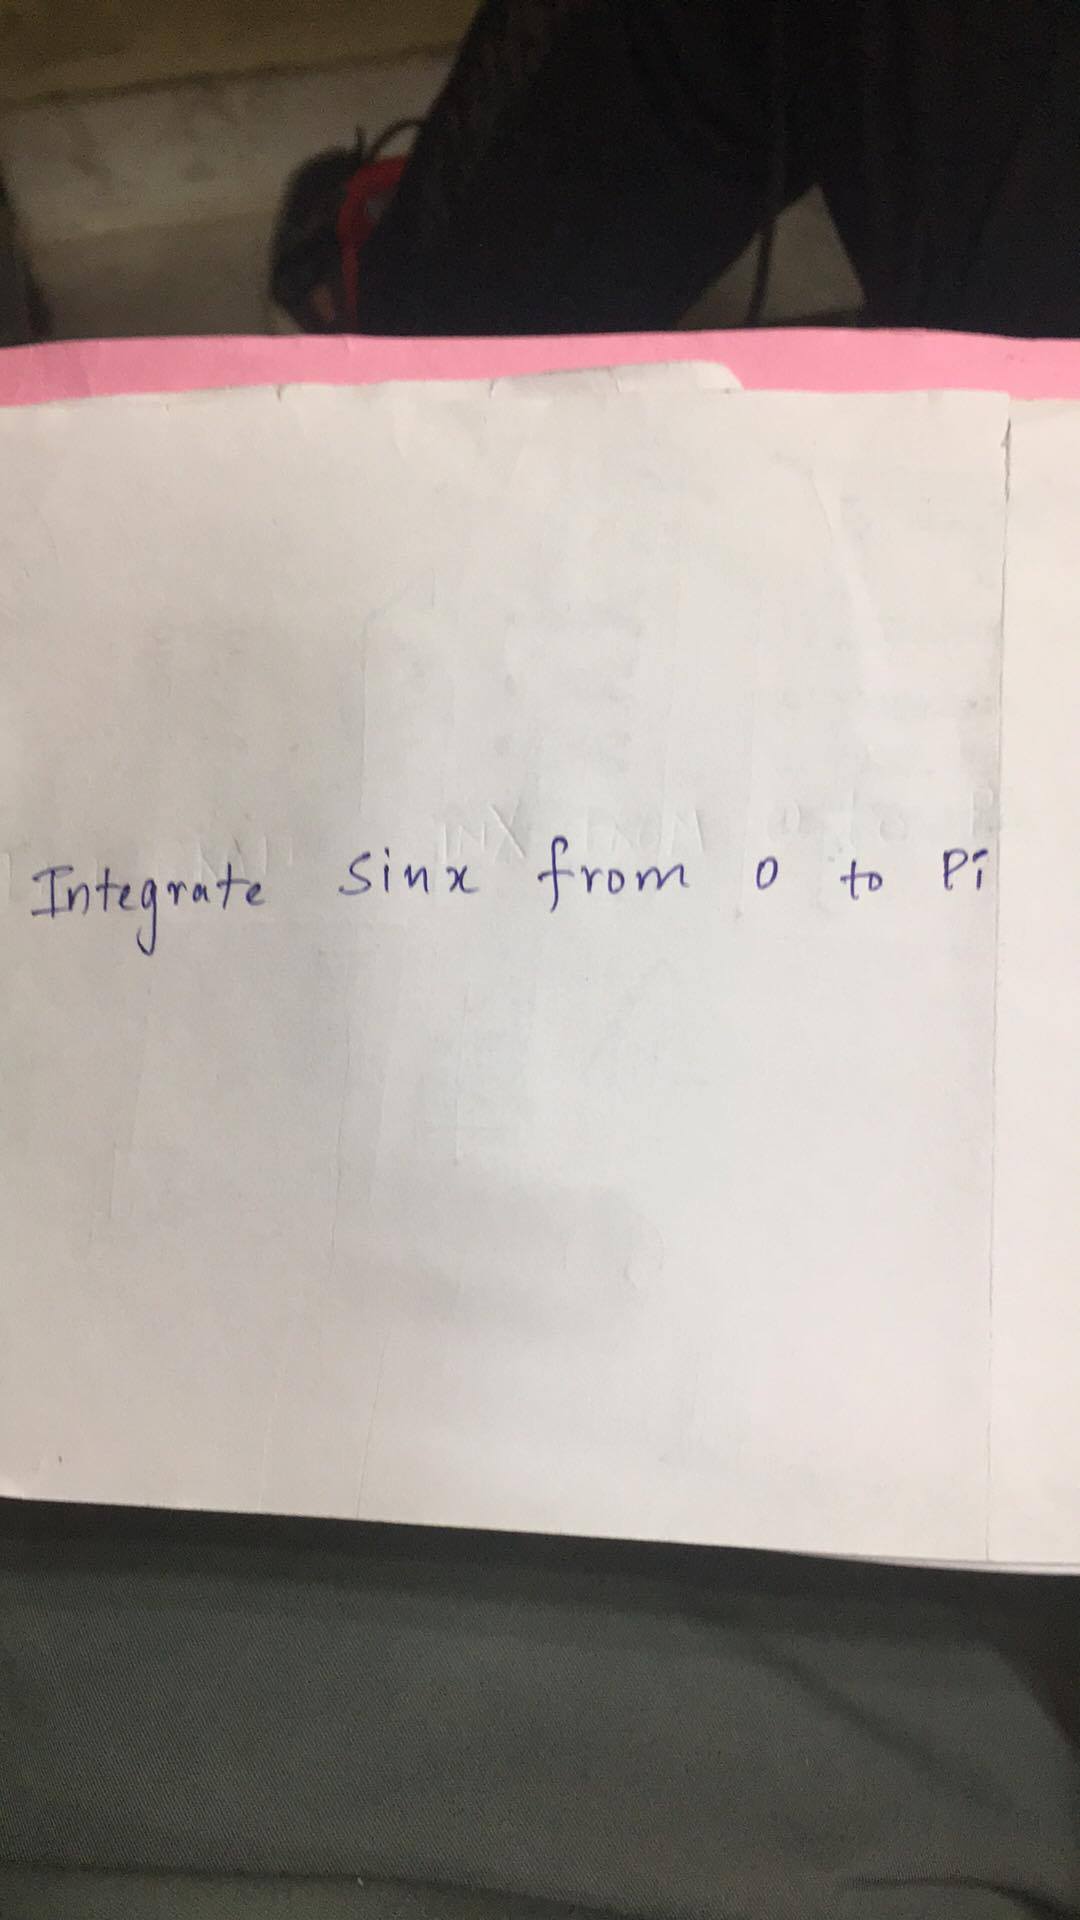 Integrate sinx from 0 to Pi